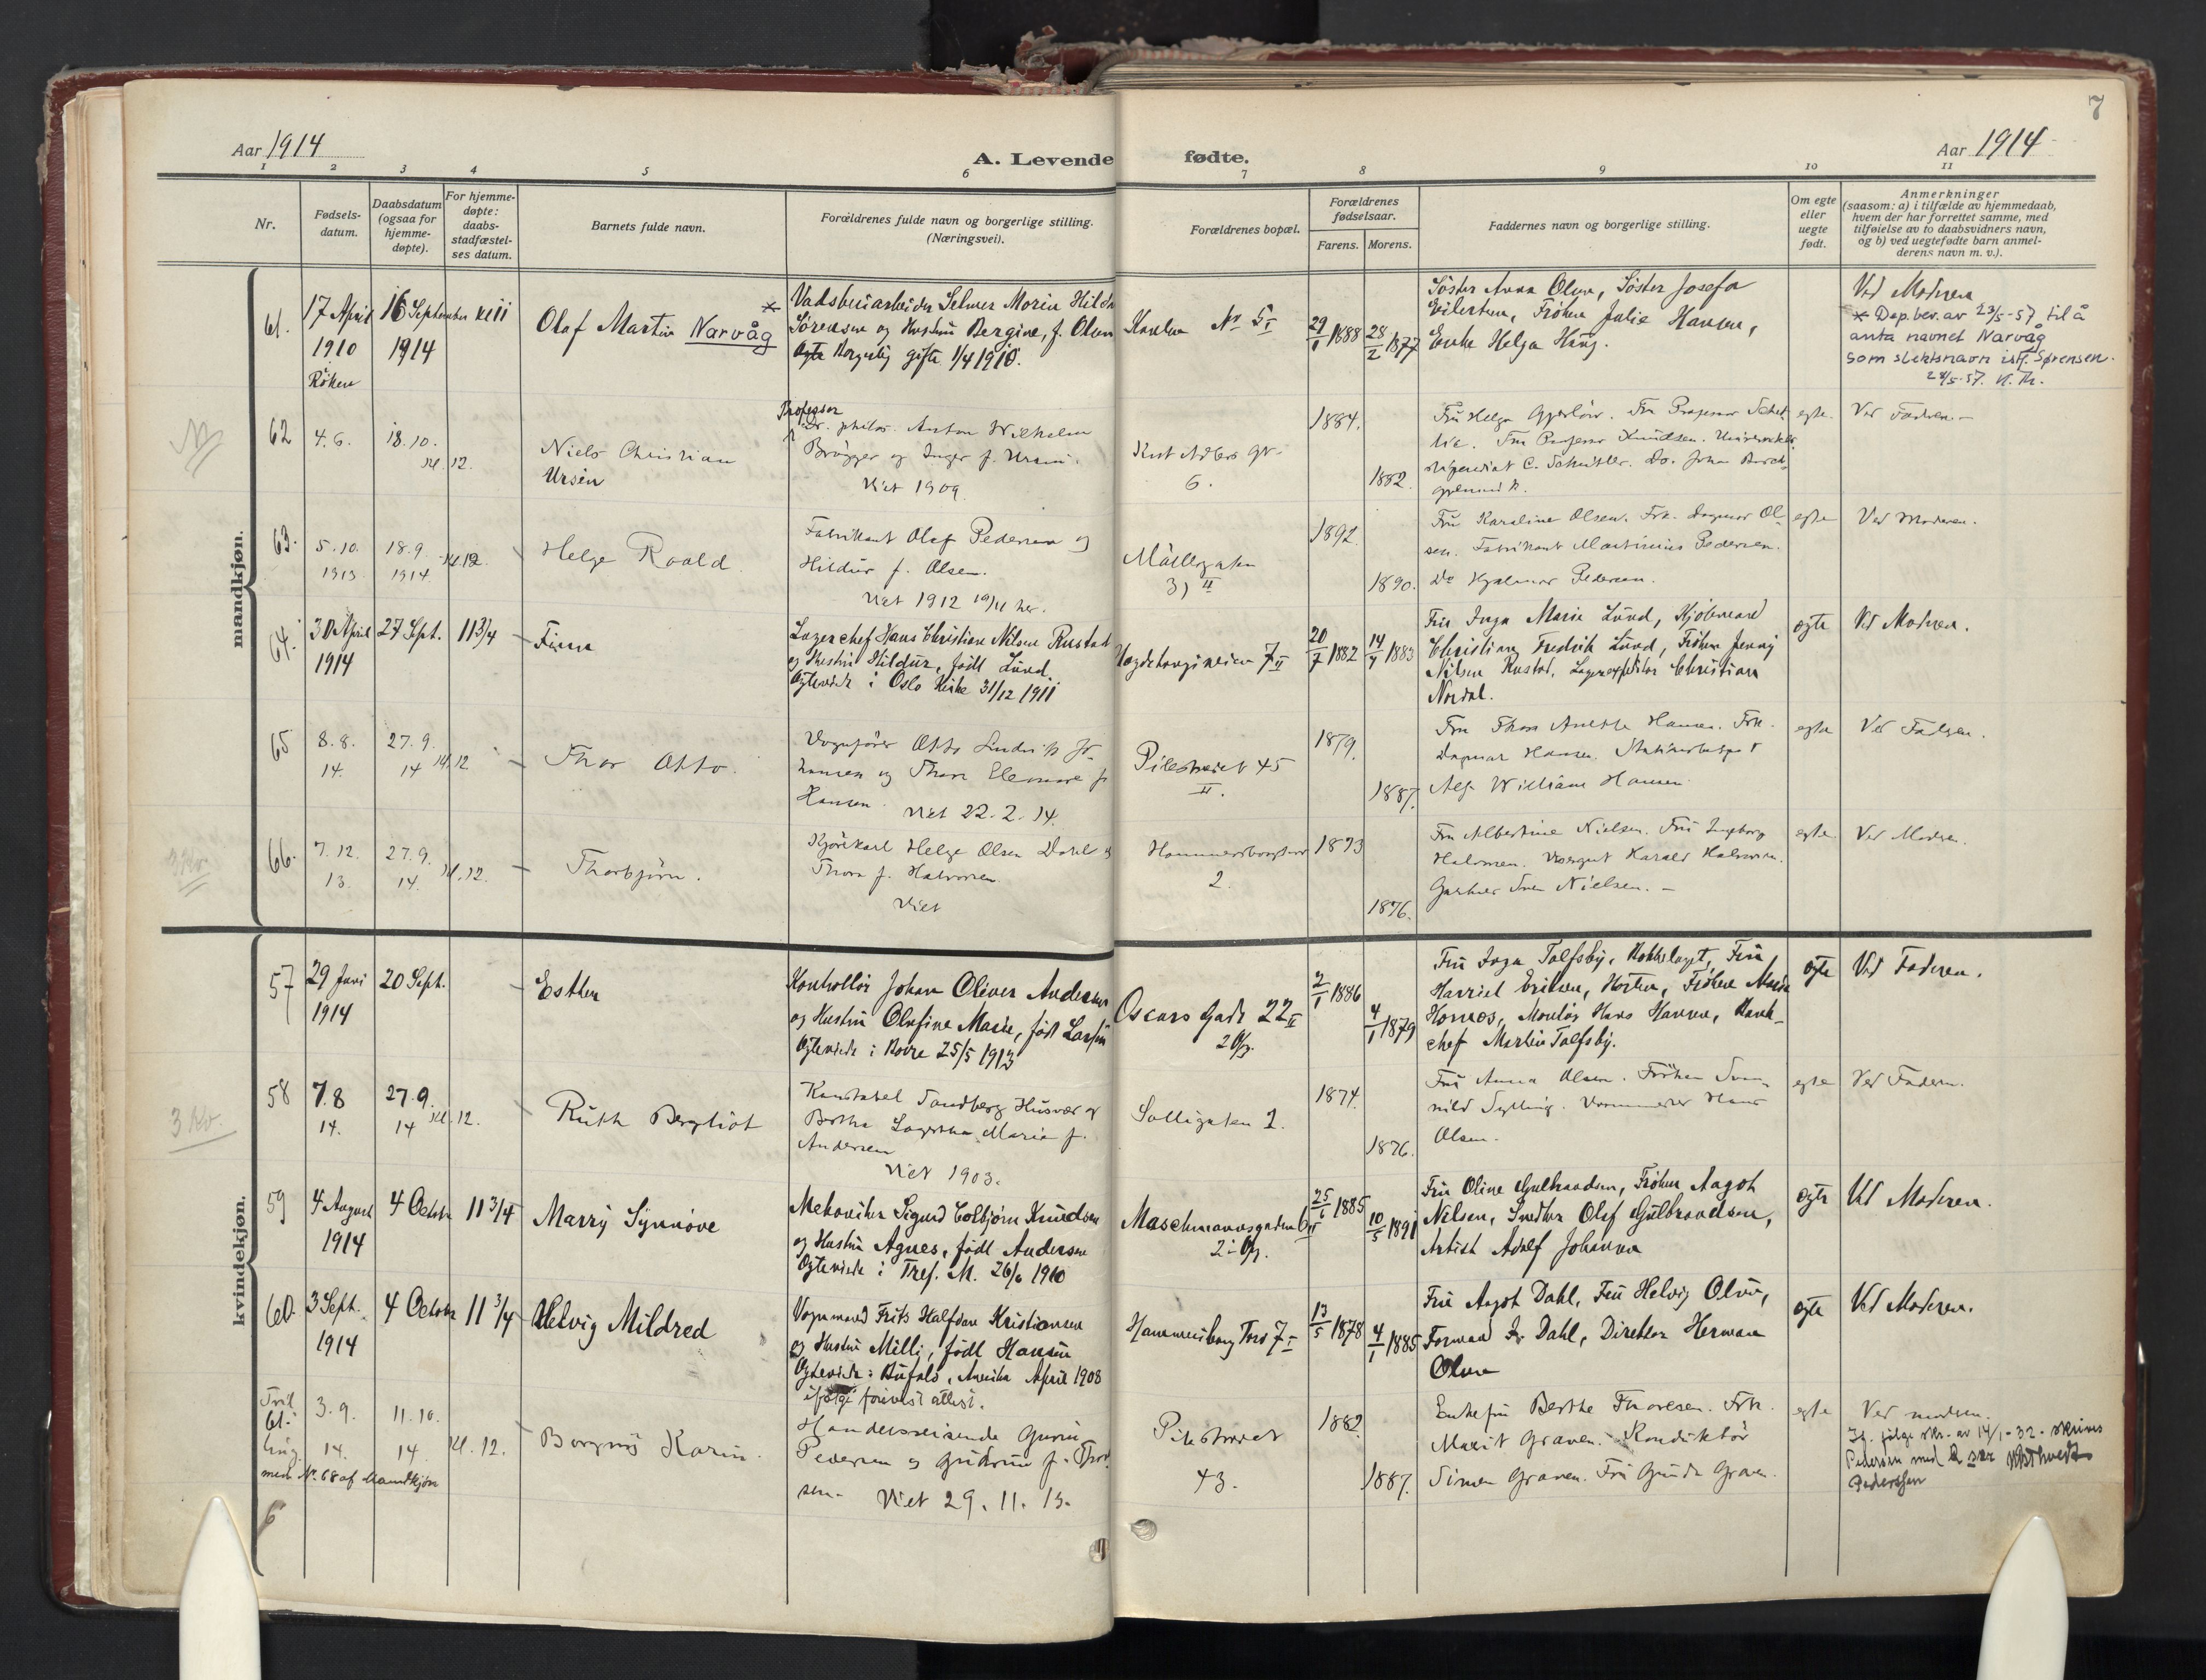 7
Aar 1914
A. Levende fødte.
Aar 1914
1 2 3 4 5 6 7 8 9 10 11
Nr.
Fødsels-
datum.
Daabsdatum
(ogsaa for
hjemme-
døpte).
For hjemme-
døpte:
daabs-
stadfæstel-
ses datum.
Barnets fulde navn.
Forældrenes fulde navn og borgerlige stilling.
(Næringsvei).
Forældrenes bopæl.
Forældrenes
fødselsaar.
Farens. Morens.
Faddernes navn og borgerlige stilling.
Om egte
eller
uegte
født.
Anmerkninger
(saasom: a) i tilfælde av hjemmedaab,
hvem der har forrettet samme, med
tilføielse av to daabsvidners navn,
og b) ved uegtefødte barn anmel-
derens navn m. v.).
mandkjøn.
61.
17 April
1910
Röken
16 September
1914
Olaf Martin Narvåg *
Sørensen og Hustru Bergine, f. Olsen
Borgerlig gifte 1/4 1910.
No 5 I
29/1 1888
28/2 1877
Søster Anna Olsen, Søster Josefa
Eilertsen, Frøken Julie Hansen,
Enke Helga Krog.
Ved Moderen
* Dep. bev. av 23/5-57 til å
anta navnet Narvåg
som slektsnavn istf. Sørensen.
62
4. 6.
18. 10.
kl. 12.
Niels Christian
Ursin
Professor
Dr. philos. Anton Wilhelm
Brøgger og Inger f. Ursin.
Viet 1909
6.
1884.
1882.
Fru Helga
Fru Professor Knudsen.
egte.
Ved Faderen. -
63.
5. 10.
1913
18. 9.
1914
kl. 12
Helge Roald.
Fabrikant Olaf Pedersen og
Hildur f. Olsen.
Viet 1912
Møllergaten
1892.
1890.
Fru Karoline Olsen. Frk. Dagmar Ol-
sen. Fabrikant Martinius Pedersen.
Do Hjalmar Pedersen.
egte
Ved Moderen.
64.
30 April
1914
27 Sept.
11 3/4
Finn
Lagerchef Hans Christian Nilsen Rustad
og Hustru Hildur, født Lund.
Ægteviede i Oslo Kirke 31/12 1911
7 II
20/7 1882
1883
Fru Inga Marie Lund, Kjøbmand
Christian Fredrik Lund, Frøken Jenny
Nilsen Rustad, Lagerexpeditør Christian
Nordal.
ægte
Ved Moderen.
65
8. 8.
14.
27. 9.
14
kl. 12
Thor Otto.
Vognfører Otto Ludvig Jo-
hansen og Thora Eleonore f.
Hansen. Viet 22. 2. 14.
Pilestrædet 45
II.
1879.
1887.
Fru Thora Anette Hansen. Frk.
Dagmar Hansen.
Alf William Hansen
egte
Ved Faderen.
66.
7. 12.
13.
27. 9.
14.
kl. 12.
Thorbjørn.
Kjørekarl Helge Olsen Dahl og
Thora f. Halvorsen.
Viet
2.
1873
1876.
Fru Albertine Nielsen. Fru Ingeborg
Halvorsen. Visergut Harald Halvorsen.
Gartner Sven Nielsen. -
egte
Ved Moderen.
kvindekjøn.
57
29 Juni
1914
20 Sept.
Esther
Kontrollør Johan Oliver Andersen
og Hustru Olufine Marie, født Larsen
Ægteviede i Borre 25/5 1913
Oscars Gade 22 II
2/1 1886
4/1 1879
Fru Inga Tolfsby, Fru
Harriet Eriksen, Horten, Frøken Marie
Hornes, Montør Hans Hansen,
chef Martin Tolfsby.
ægte
Ved Faderen.
3 Kv.
58
7. 8
14.
27. 9.
14
kl. 12.
Ruth Bergliot
Konstabel Sandberg Husvær og
Bertha Lagertha Marie f.
Andersen
Viet 1903.
Solligaten 2.
1874.
1876.
Fru Anna Olsen. Frøken
Hans
Olsen.
egte
Ved Faderen.
59
4 August
1914
4 October
11 3/4
Marry Synnøve
Sigurd Colbjørn Knudsen
og Hustru Agnes, født Andersen
Ægteviede i Tref. M. 26/6 1910
Maschmannsgaden 6 II
25/1 1885
10/5 1891
Fru Oline Gulbrandsen, Frøken Aagot
Nilsen, Olaf Gulbrandsen,
Artist Adolf Johansen
ægte
Ved Moderen.
60.
3 Sept.
1914
4 October
11 3/4
Helvig Mildred
Vognmand Frits Halfdan Kristiansen
og Hustru Milli, født Hansen
Ægteviede i Bufalo, Amerika April 1908
ifølge forevist attest.
Hammersborg Torv 7 I
13/5 1878
4/1 1885
Fru Aagot Dahl, Fru Helvig Olsen,
Formand Dahl, Direktør Herman
Olsen
ægte
Ved Moderen.
Tvil
61.
ling
med No. 68 af Mandkjøn
3. 9.
14.
11. 10.
14
kl. 12.
Borgny Karin.
Handelsreisende
Pedersen og Gudrun f. Thor-
sen. Viet 29. 11. 13.
Pilestrædet
43.
1882
1887.
Enkefru Berthe Thoresen. Frk.
Marit Graven. Konduktør
Simen Graven. Fru Gunda Graven.
egte
Ved moderen.
If. følge skr. av 14/1-32 skrives
Pedersen med
Pederssen
6